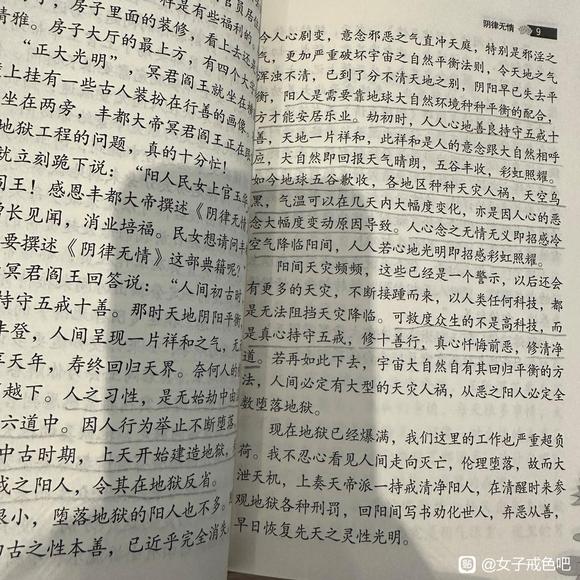 样是有些福利的
，房子里面的装修，看上去还
清雅。房子大厅的最上方，有四个大
“正大光明”，冥君阎王就坐在
壁上挂有一些古人装扮在行善的画像。
坐在两旁，丰都大帝冥君阎王正在跟
地狱工程的问题，真的十分忙！
就立刻跪下说：“阳人民女上官玉华
阎王！感恩丰都大帝撰述《阴律无情
长见闻，消业培福。民女想请问丰
要撰述《阴律无情》这部典籍呢？
冥君阎王回答说：“人间初古时
持守五戒十善。那时天地阴阳平衡
丰登，人间呈现一片祥和之气，无
享天年，寿终回归天界。奈何人的
越下。人之习性，是无始劫中由
六道中。因人行为举止不断堕落
中古时期，上天开始建造地狱，
戒之阳人，令其在地狱反省。
很小，堕落地狱的阳人也不多。
古之性本善，已近乎完全消失
阴律无情 9
今人心剧变，意念邪恶之气直冲天庭，特别是邪淫之
气，更加严重破坏宇宙之自然平衡法则，令天地之气
浑浊不清，已到了分不清天地之别，阴阳早已失去平
衡，阳人是需要靠地球大自然环境种种平衡的配合，
方才能安居乐业。劫初时，人人心地善良持守五戒十
善，天地一片祥和，此祥和是人的意念跟大自然相呼
应，大自然即回报天气晴朗，五谷丰收，彩虹照耀。
如今地球五谷歉收，各地区种种天灾人祸，天空乌
黑，气温可以在几天内大幅度变化，亦是因人心的恶
念大幅度变动原因导致。人心念之无情无义即招感冷
空气降临阳间，人人若心地光明即招感彩虹照耀。
阳间天灾频频，这些已经是一个警示，以后还会
有更多的天灾，不断接踵而来，以人类任何科技，都
是无法阻挡天灾降临。可救度众生的不是高科技，而
是真心持守五戒，修十善行，真心忏悔前恶，修清净
道。若再如此下去，宇宙大自然自有其回归平衡的方
法，人间必定有大型的天灾人祸，从恶之阳人必定全
数堕落地狱。
现在地狱已经爆满，我们这里的工作也严重超负
荷。我不忍心看见人间走向灭亡，伦理堕落，故而大
泄天机，上奏天帝派一持戒清净阳人，在清醒时来参
观地狱各种刑罚，回阳间写书劝化世人，弃恶从善，
早日恢复先天之灵性光明。
贴 @女子戒色吧